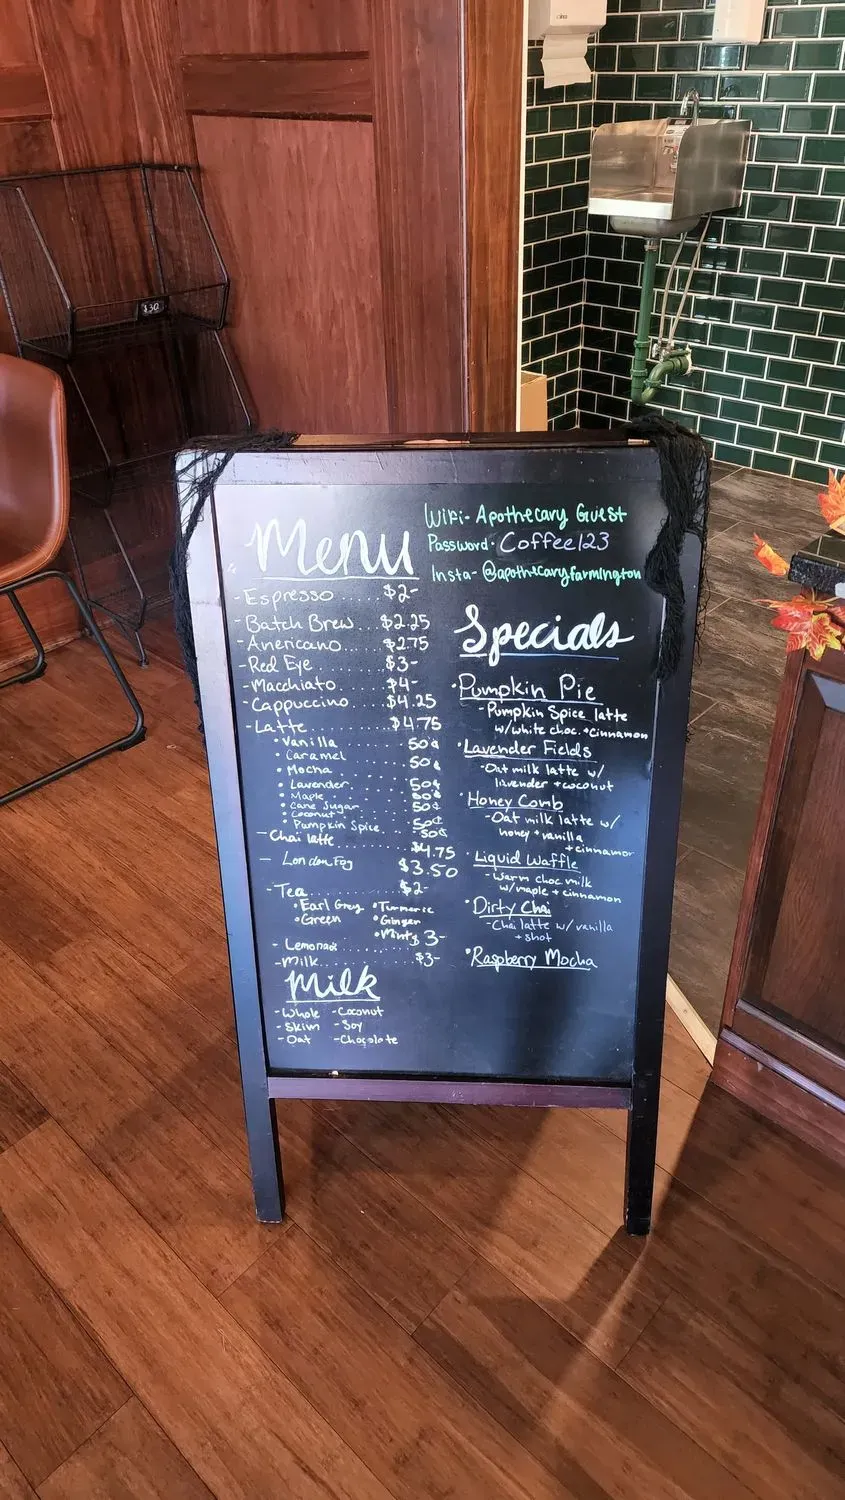 $30
Menu
- Espresso ..... $2-
- Batch Brew... $2.25
- Americano.... $2.75
- Red Eye ..... $3-
- Macchiato .... $4-
- Cappuccino.... $4.25
- Latte......... $4.75
• Vanilla ....... 50¢
• Caramel
• Mocha ....... 50¢
• Lavender ...... 50¢
• Maple ...... 50¢
• Cane Sugar..... 50¢
• Coconut
• Pumpkin Spice... 50¢
50¢
- Chai latte ....... $4.75
- London Fog $3.50
- Tea ......... $2-
• Earl Grey • Turmeric
• Green • Ginger
• Mint
- Lemonade ......... $3-
- Milk............ $3-
Milk
- Whole - Coconut
- Skim - Soy
- Oat - Chocolate
Wifi- Apothecary Guest
Password- Coffee123
Insta- @apothecaryfarmington
Specials
• Pumpkin Pie
- Pumpkin Spice latte
w/white choc. + cinnamon
• Lavender Fields
- Oat milk latte w/
lavender + coconut
• Honey Comb
- Oat milk latte w/
honey + vanilla
+ cinnamon
• Liquid Waffle
- Warm choc milk
w/maple + cinnamon
• Dirty Chai
- Chai latte w/ vanilla
+ shot
• Raspberry Mocha